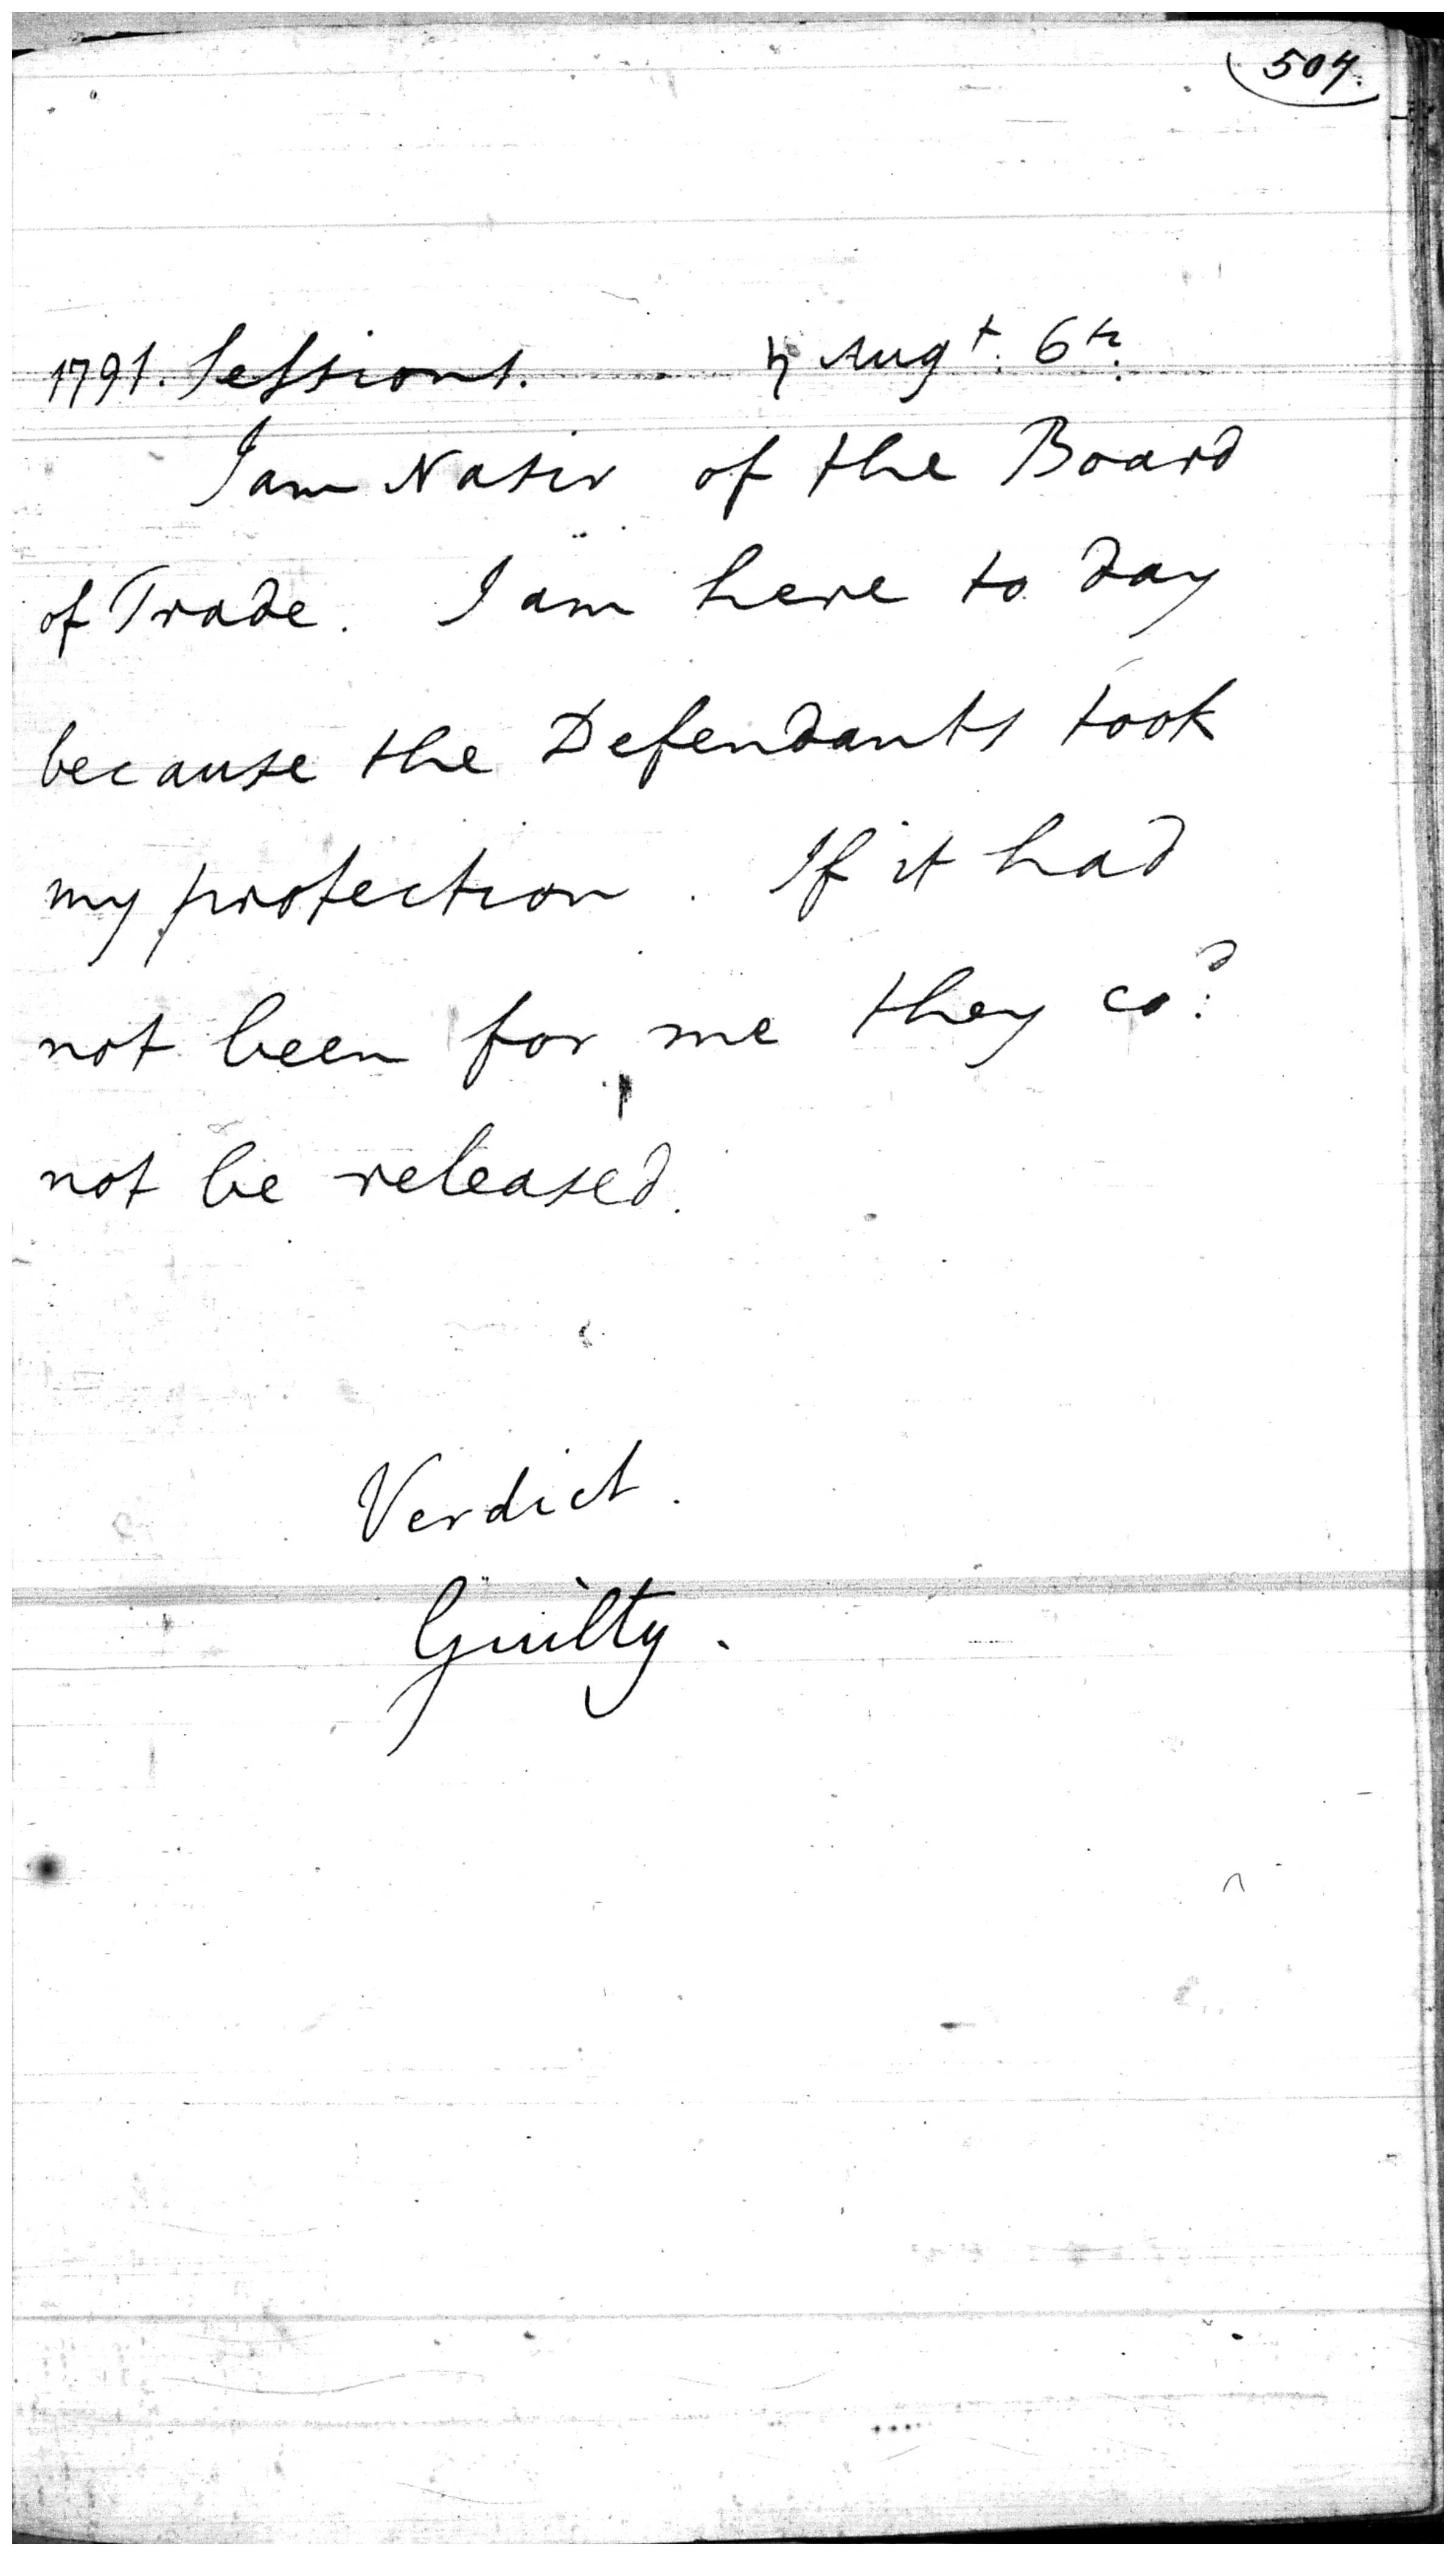 504.
1791. Sessions. ♄ Augt. 6th.
I am Nasir of the Board
of Trade. I am here to day
because the Defendants took
my protection. If it had
not been for me they cod.
not be released.
Verdict.
Guilty.